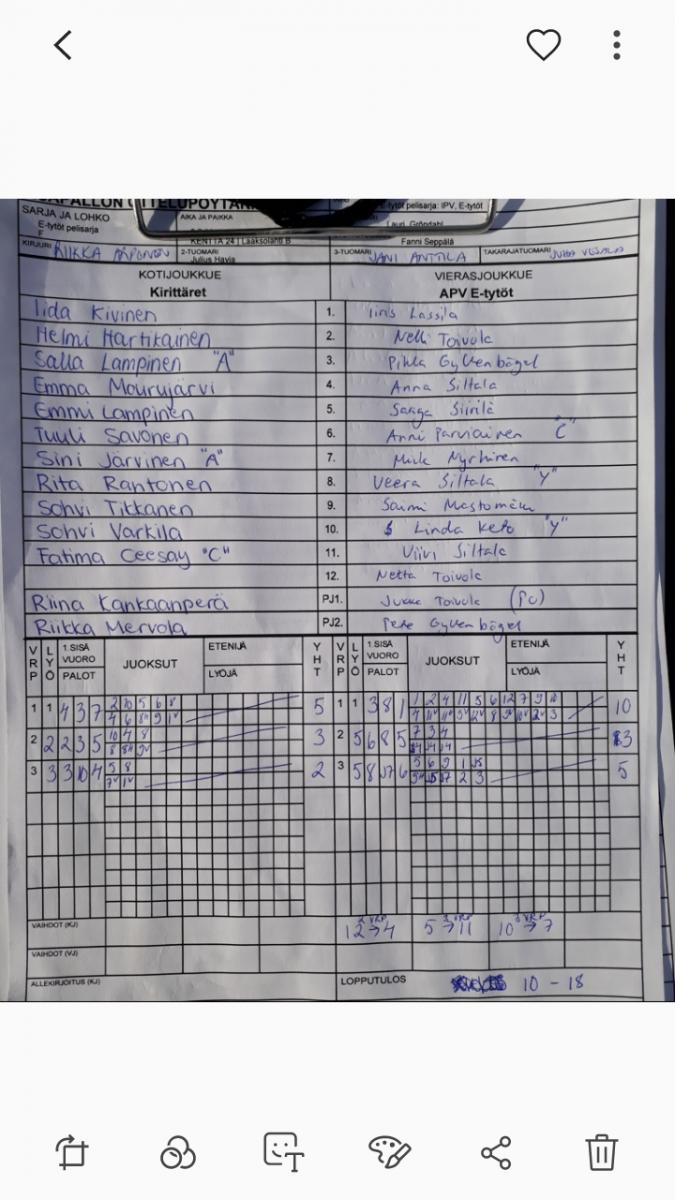 SARJA JA LOHKO
E-tytöt pelisarja
AIKA JA PAIKKA
E-tytöt pelisarja: IPV, E-tytöt
KENTTÄ 24 | Laaksolahti B
Lauri Gröndahl
KIRJURI RIIKKA PÄPONEN
2-TUOMARI Julius Havia
Fanni Seppälä
3-TUOMARI JANI ANTTILA
TAKARAJATUOMARI JUHA VESALA
KOTIJOUKKUE
VIERASJOUKKUE
Kirittäret
APV E-tytöt
Iida Kivinen 1. Iiris Lassila
Helmi Hartikainen 2. Nelli Toivola
Salla Lampinen "A" 3. Pihla Gyllenbögel
Emma Mourujärvi 4. Anna Siltala
Emmi Lampinen 5. Saaga Siirilä
Tuuli Savonen 6. Anni Parviainen "C"
Sini Järvinen "A" 7. Nyrhinen
Rita Rantonen 8. Veera Siltala "Y"
Sohvi Tikkanen 9. Saimi Mastomäki
Sohvi Varkila 10. Linda Keto "Y"
Fatima Ceesay "C" 11. Viivi Siltala
12. Netta Toivola
Riina Kankaanperä PJ1. Jukka Toivola (PJ)
Riikka Mervola PJ2. Pete Gyllenbögel
VRP LYÖ 1.SISÄ VUORO PALOT JUOKSUT ETENIJÄ LYÖJÄ YHT VRP LYÖ 1.SISÄ VUORO PALOT JUOKSUT ETENIJÄ LYÖJÄ YHT
1 1 4 3 7 2 10 5 6 8 5 1 1 3 8 1 1 2 4 11 5 6 12 7 9 10 10
2 2 2 3 5 10 4 8 3 2 5 6 8 5 7 3 4 3
3 3 3 10 4 5 8 2 3 5 8 J7 6 5 6 9 1 J5 5
VAIHDOT (KJ) 12→4 5→11 10→7
VAIHDOT (VJ)
ALLEKIRJOITUS (KJ) LOPPUTULOS 10 - 18